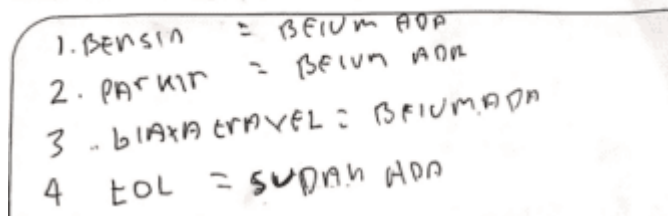 1. BENSIN = BELUM ADA
2. PARKIR = BELUM ADA
3. BIAYA TRAVEL = BELUM ADA
4 TOL = SUDAH ADA